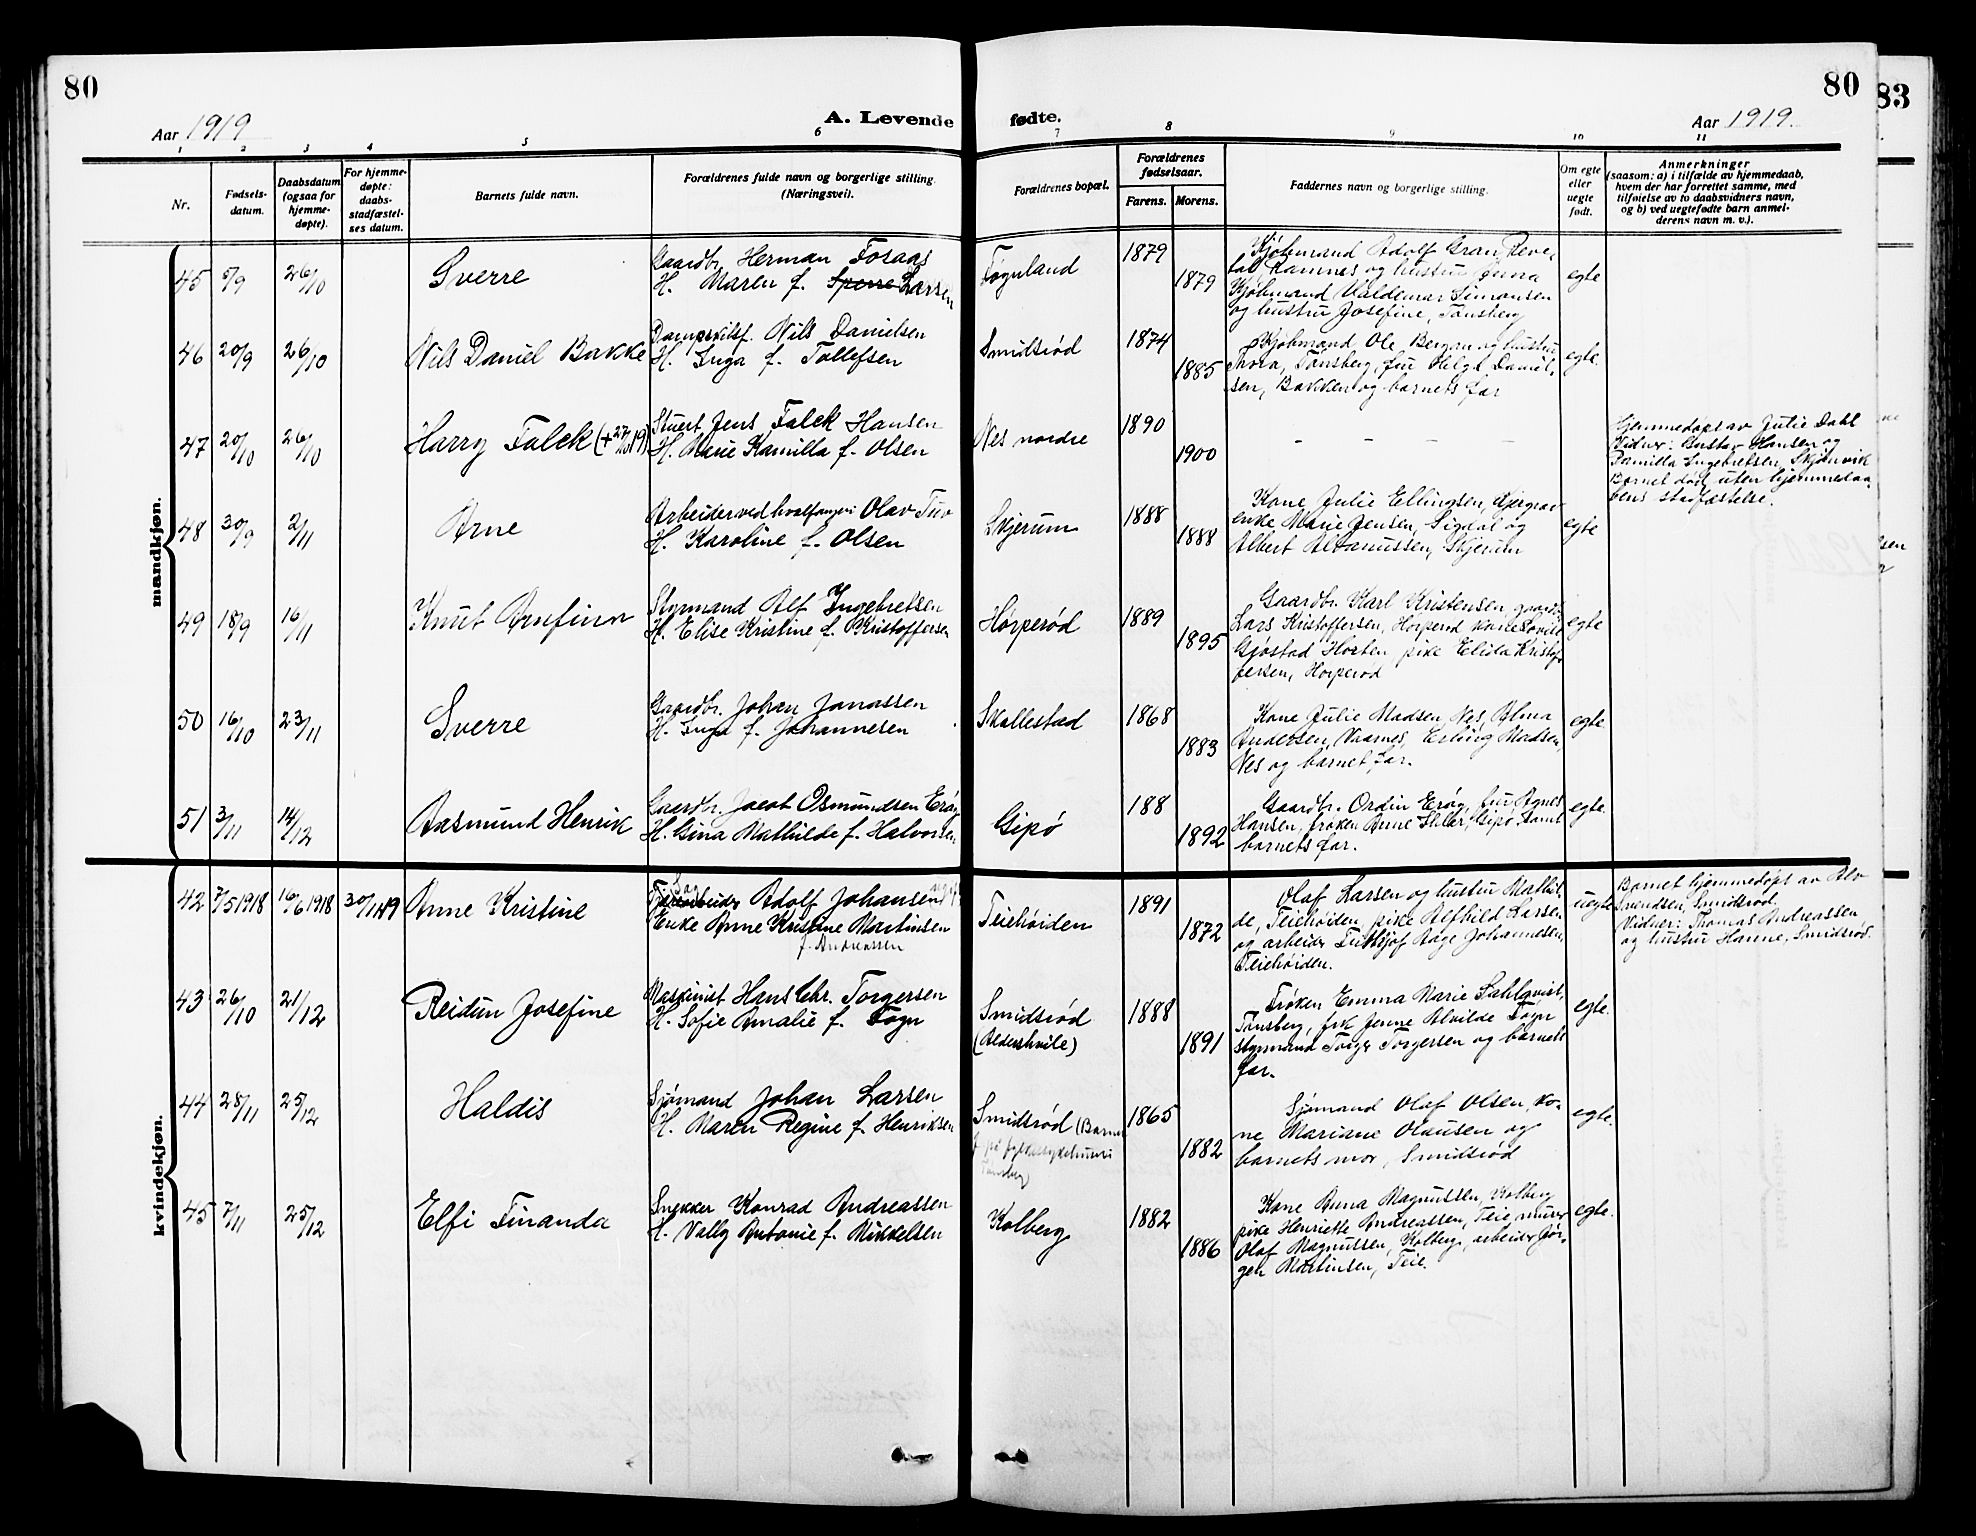 80
80
83
Aar 1919
A. Levende
fødte.
Aar 1919.
1 2 3 4 5 6 7 8 9 10 11
Nr.
Fødsels-
datum.
Daabsdatum
(ogsaa for
hjemme-
døpte).
For hjemme-
døpte:
daabs-
stadfæstel-
ses datum.
Barnets fulde navn.
Forældrenes fulde navn og borgerlige stilling.
(Næringsvei).
Forældrenes bopæl.
Forældrenes
fødselsaar.
Farens.
Morens.
Faddernes navn og borgerlige stilling.
Om egte
eller
uegte
født.
Anmerkninger
(saasom: a) i tilfælde av hjemmedaab,
hvem der har forrettet samme, med
tilføielse av to daabsvidners navn,
og b) ved uegtefødte barn anmel-
derens navn m. v.).
mandkjøn.
45 5/9 26/10 Sverre
Gaardbr. Herman Foraas
H. Maren f. Larsen
Føynland 1879 1879
Kjøbmand Adolf Gran, Reve-
tal, Ramnes og hustru Anna
Kjøbmand Valdemar Simonsen
og hustru Josefine, Tønsberg
egte
46 20/9 26/10 Nils Daniel Bakke
Dampskibsf. Nils Danielsen
H. Inga f. Tollefsen
Smidsrød 1874 1885
Kjøbmand Ole Bergan og hustru
Thora, Tønsberg, fru Helga Daniel-
sen, Bakken og barnets far
egte.
47 20/10 26/10 Harry Falck (+27/10 19)
Stuert Jens Falck Hansen
H. Marie Kamilla f. Olsen
Nes nordre 1890 1900
- - - - -
Hjemmedøpt av Julie Dahl
Vidner: Gustav Hansen og
Kamilla Ingebretsen, Skjønvik
Barnet død uten hjemmedaa-
bens stadfæstelse.
48 30/9 2/11 Arne
Arbeider ved hvalfanger: Olav Tuv
H. Karoline f. Olsen
Skjerum 1888 1888
Kone Julie Ellingsen, Kjærgrav
enke Marie Jensen, Sigdal og
Albert Asmussen, Skjerum
egte
49 18/9 16/11 Knut Arnfinn
Styrmand Alf Ingebretsen
H. Elise Kristine f. Kristoffersen
Hørperød 1889 1895
Gaardbr. Karl Kristensen, gaardbr.
Lars Kristoffersen, Horperød, kone Lovise
Gjøstad Horten, pike Elida Kristof-
fersen, Horperød
egte
50 16/10 23/11 Sverre
Gaardbr. Johan Jonassen
H. Inga f. Johannesen
Skallestad 1868 1883
Kone Julie Madsen, Nes, Alma
Andersen, Vaarnes, Erling Madsen,
Nes og barnets far.
egte.
51 3/11 14/12 Aasmund Henrik
Gaardbr. Jacob Osmundsen Erøy
H. Gina Mathilde f. Halvorsen
Gipø 188 1892
Gaardbr. Ordin Erøy, fru Agnes
Hansen, frøken Anne Ehler, Gipø samt
barnets far.
egte.
kvindekjøn.
42 7/5 1918 16/6 1918 30/11 19 Anne Kristine
Adolf Johansen
Enke Anne Kristine Martinsen
f. Andreassen
Teiehøiden 1891 1872
Olaf Larsen og hustru Mathil-
de, Teiehøiden, pike Alfhild Larsen
og arbeider Frithjof Aage Johannesen,
Teiehøiden.
uegte
Barnet hjemmedøpt av Alv
Svendsen, Smidsrød.
Vidner: Thomas Andreassen,
og hustru Hanne, Smidsrød.
43 26/10 21/12 Reidun Josefine
Maskinist Hans Chr. Torgersen
H. Sofie Amalie f. Føyn
Smidsrød
(Aldershvile)
1888 1891
Frøken Emma Marie Sahlqvist,
Tønsberg, frk Jenne Alvilde Føyn
styrmand Torger Torgersen og barnets
far.
egte.
44 28/11 25/12 Haldis
Sjømand Johan Larsen
H. Maren Regine f. Henriksen
Smidsrød (Barnet
f. på fylkessykehuset i
Tønsberg)
1865 1882
Sjømand Olaf Olsen, ko-
ne Mariane Olausen og
barnets mor, Smidsrød
egte.
45 7/11 25/12 Elfi Finanda
Snekker Konrad Andreassen
H. Vally Antonie f. Mikkelsen
Kolberg 1882 1886
Kone Anna Magnussen, Kolberg
pike Henriette Andreassen, Teie, murer
Olaf Magnussen, Kolberg, arbeider Jør-
gen Martinsen, Teie.
egte.